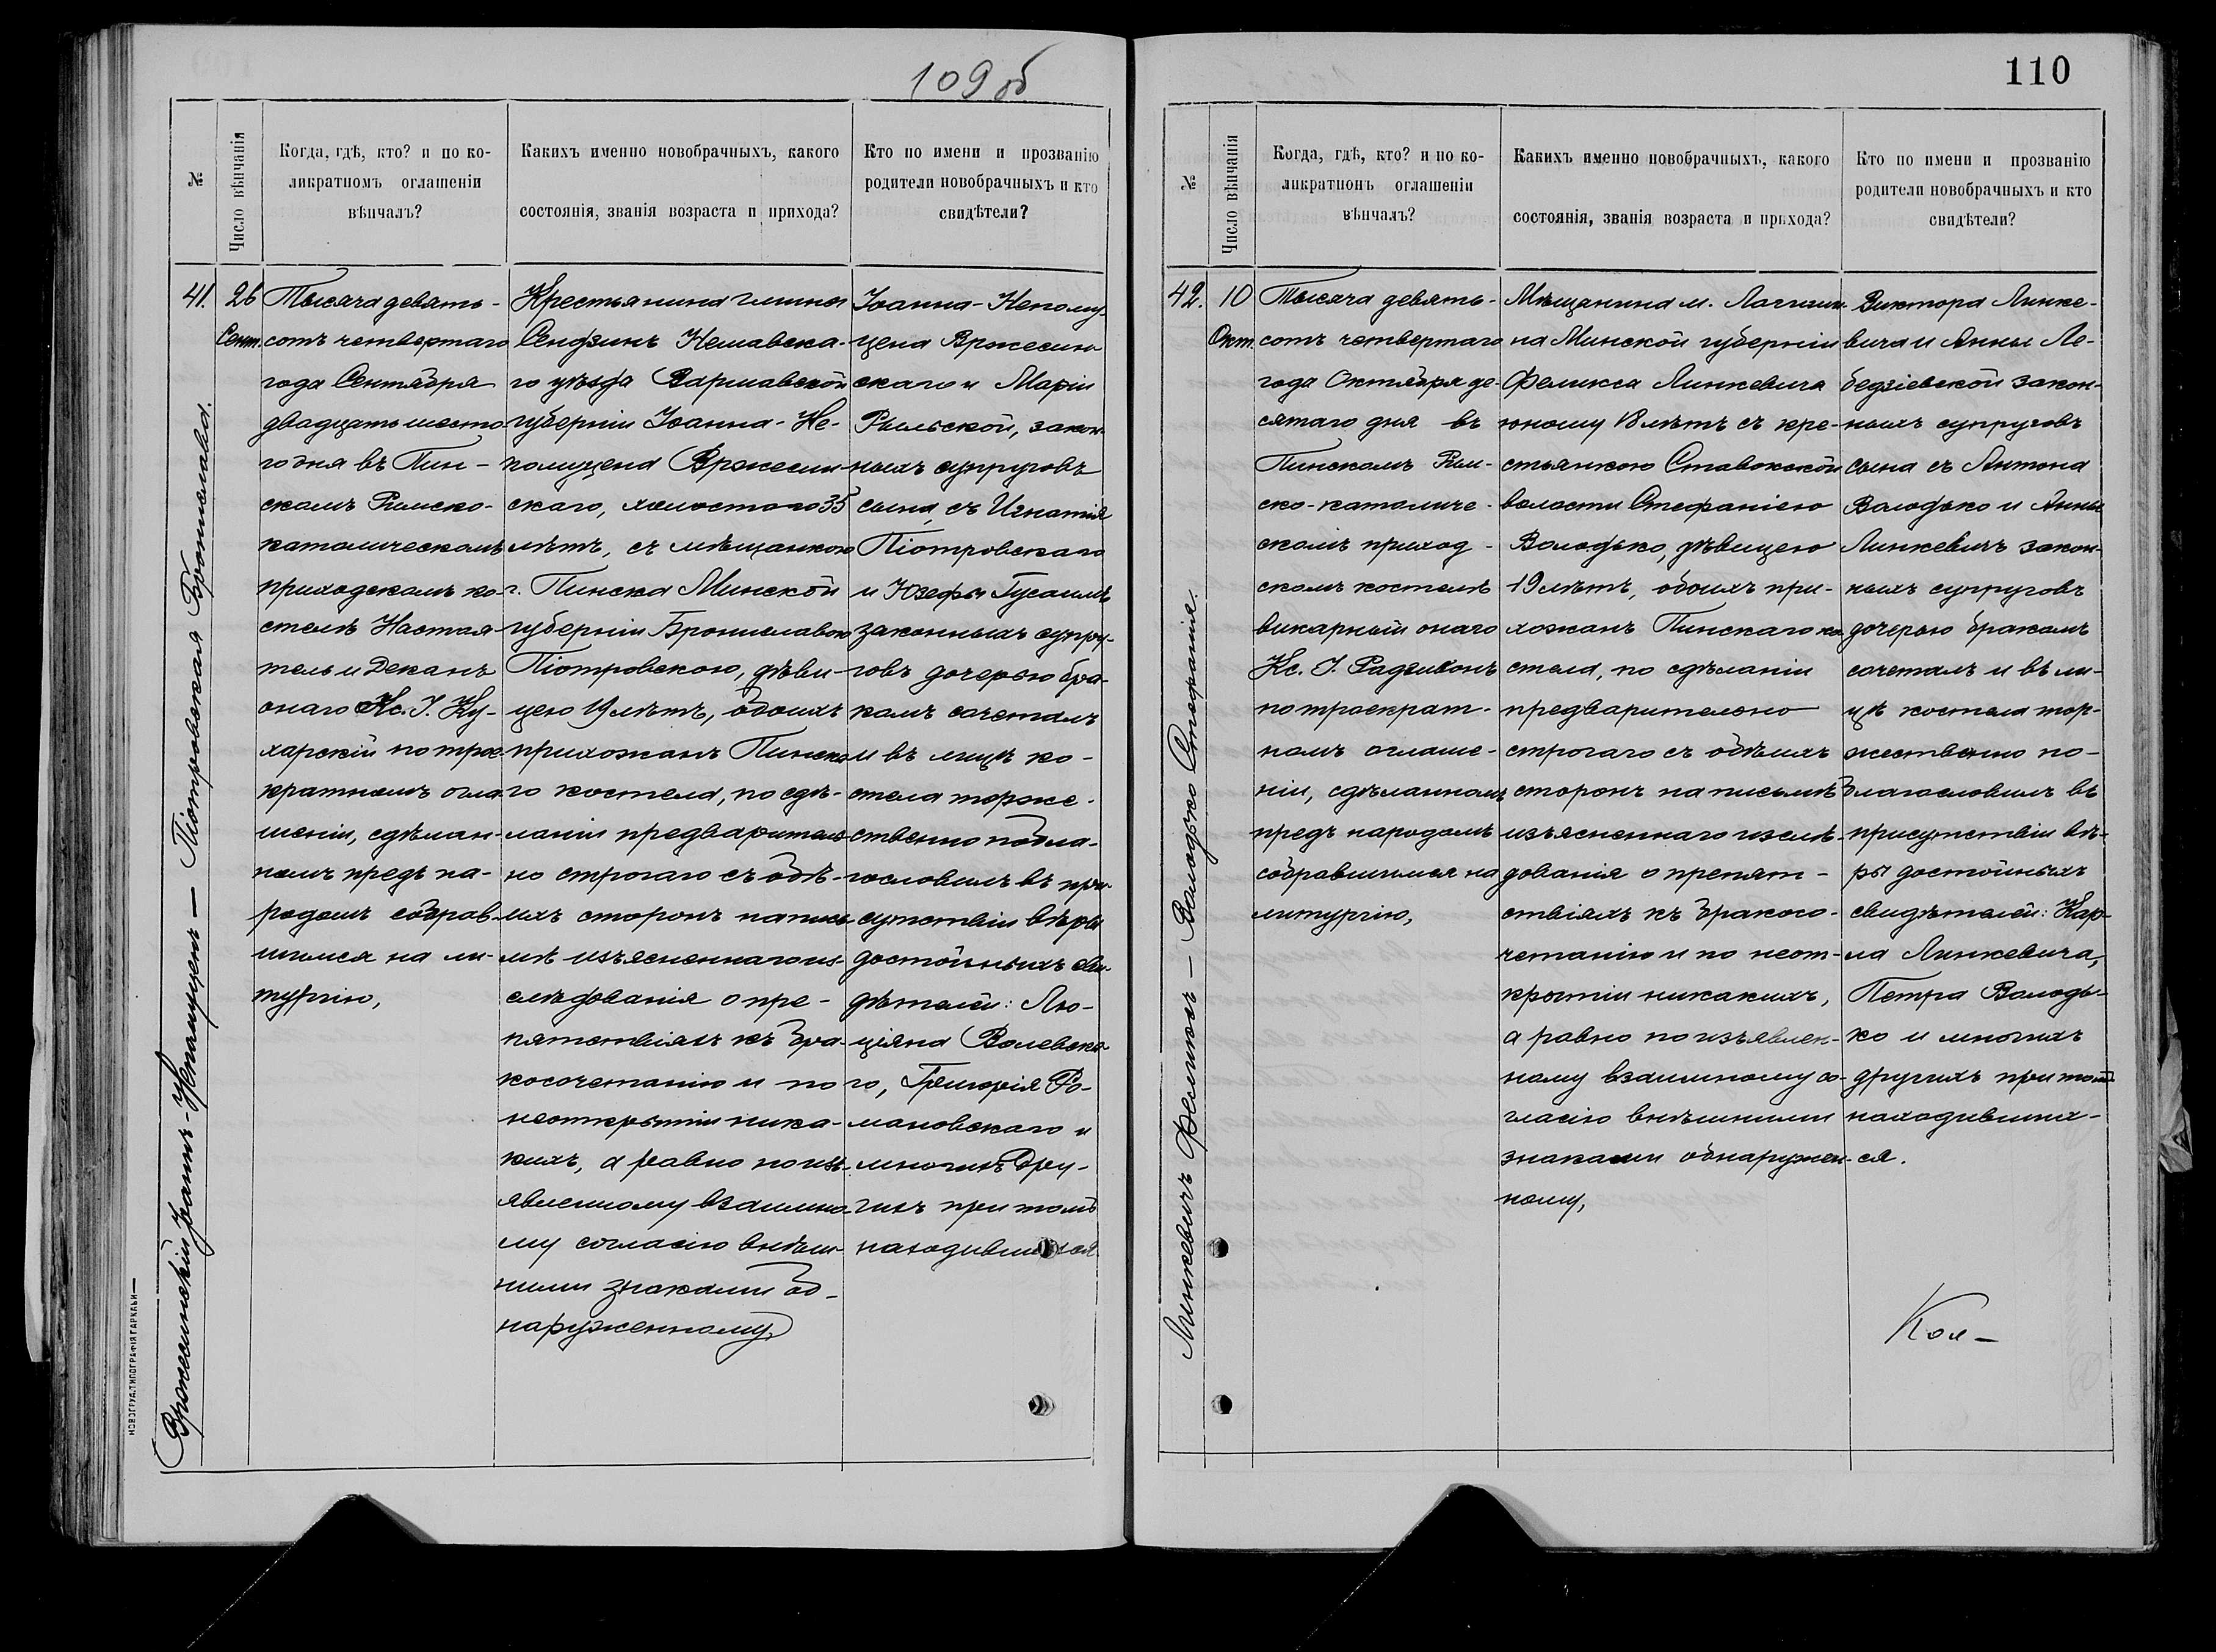 109 об
№
Число вѣнчанія
Когда, гдѣ, кто? и по ко-
ликратномъ оглашеніи
вѣнчалъ?
Какихъ именно новобрачныхъ, какого
состоянія, званія возраста и прихода?
Кто по имени и прозванію
родители новобрачныхъ и кто
свидѣтели?
Вржесинскій Іоаннъ-Непомуценъ — Піотровская Бронислава.
41.
26
Сент.
Тысяча девять-
сотъ четвертаго
года Сентября
двадцать шесто-
го дня въ Пин-
скомъ Римско-
католическомъ
приходскомъ ко-
стелѣ Настоя-
тель и Деканъ
онаго Кс. І. Ку-
харскій по трое-
кратномъ огла-
шеніи, сдѣлан-
номъ предъ на-
родомъ собрав-
шимся на ли-
тургію,
Крестьянина гмины
Сендзинъ Нешавска-
го уѣзда Варшавской
губерніи Іоанна-Не-
помуцена Вржесин-
скаго, холостого 35
лѣтъ, съ мѣщанкою
г. Пинска Минской
губерніи Брониславою
Піотровскою, дѣви-
цею 19 лѣтъ, обоихъ
прихожанъ Пинска-
го костела, по сдѣ-
ланіи предваритель-
но строгаго съ обѣ-
ихъ сторонъ на пись-
мѣ изъясненнаго из-
слѣдованія о пре-
пятствіяхъ къ бра-
косочетанію и по
неоткрытіи ника-
кихъ, а равно по изъ-
явленному взаимно-
му согласію внѣш-
ними знаками об-
наруженному,
Іоанна-Непому-
цена Вржесин-
скаго и Маріи
Рыльской, закон-
ныхъ супруговъ
сына, съ Игнатія
Піотровскаго
и Юзефы Гусаимъ
законныхъ супру-
говъ дочерью бра-
комъ сочеталъ
и въ лицѣ ко-
стела торже-
ственно побла-
гословилъ въ при-
сутствіи вѣры
достойныхъ сви-
дѣтелей: Лю-
ціяна Волевска-
го, Григорія Ро-
мановскаго и
многихъ дру-
гихъ при томъ
находившихся.
НОВОГРУД. ТИПОГРАФІЯ ГАРКАВИ
110
№
Число вѣнчанія
Когда, гдѣ, кто? и по ко-
ликратномъ оглашеніи
вѣнчалъ?
Какихъ именно новобрачныхъ, какого
состоянія, званія возраста и прихода?
Кто по имени и прозванію
родители новобрачныхъ и кто
свидѣтели?
Линкевичъ Феликсъ — Володько Стефанія.
42.
10
Окт.
Тысяча девять-
сотъ четвертаго
года Октября де-
сятаго дня въ
Пинскомъ Рим-
ско-католиче-
скомъ приход-
скомъ костелѣ
викарный онаго
Кс. І. Радзивонъ
по троекрат-
номъ оглаше-
ніи, сдѣланномъ
предъ народомъ
собравшимся на
литургію,
Мѣщанина м. Логиши-
на Минской губерніи
Феликса Линкевича
юношу 18 лѣтъ съ кре-
стьянкою Ставокской
волости Стефаніею
Володько, дѣвицею
19 лѣтъ, обоихъ при-
хожанъ Пинскаго ко-
стела, по сдѣланіи
предварительно
строгаго съ обѣихъ
сторонъ на письмѣ
изъясненнаго изслѣ-
дованія о препят-
ствіяхъ къ бракосо-
четанію и по неот-
крытіи никакихъ,
а равно по изъявлен-
ному взаимному со-
гласію внѣшними
знаками обнаружен-
ному,
Виктора Линке-
вича и Анны Ле-
бедзіевской закон-
ныхъ супруговъ
сына съ Антона
Володько и Анны
Линкевичъ закон-
ныхъ супруговъ
дочерью бракомъ
сочеталъ и въ ли-
цѣ костела тор-
жественно по-
благословилъ въ
присутствіи вѣ-
ры достойныхъ
свидѣтелей: Кар-
ла Линкевича,
Петра Володь-
ко и многихъ
другихъ при томъ
находивших-
ся.